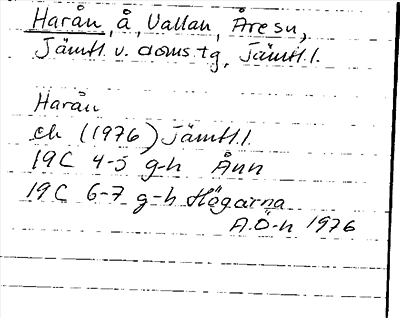 Harån, å, Vallan, Åresn,
Jämtl. v. doms.tg, Jämtl.l.
Harån
ek (1976) Jämtl.l.
19C 4-5 g-h Ånn
19C 6-7 g-h Högarna
A.Ö-n 1976